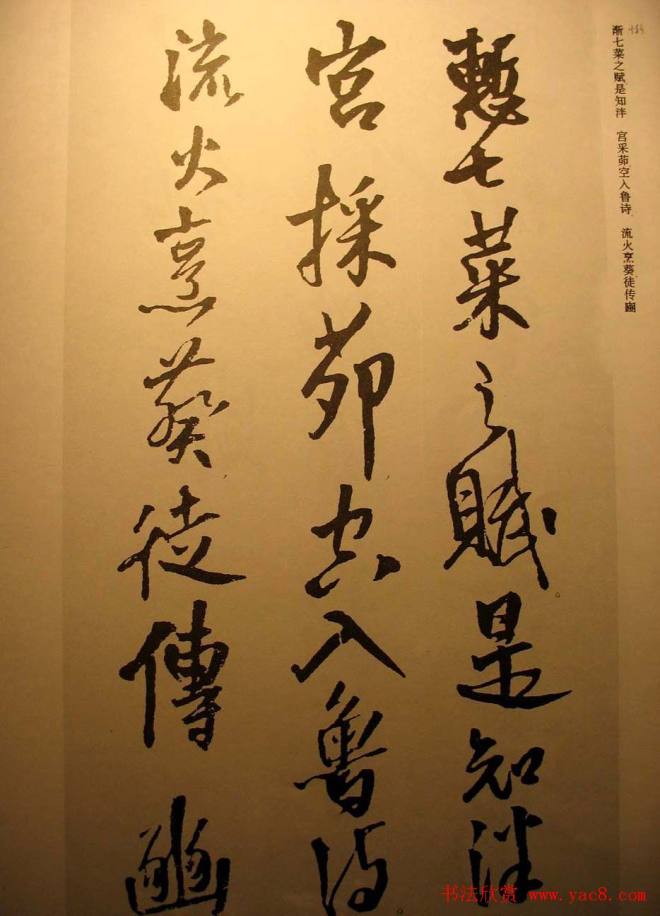 慙七菜之賦是知泮
宮採茆空入魯诗
流火烹葵徒傳豳
渐七菜之赋是知泮 宫采茆空入鲁诗 流火烹葵徒传豳
书法欣赏 www.yac8.com